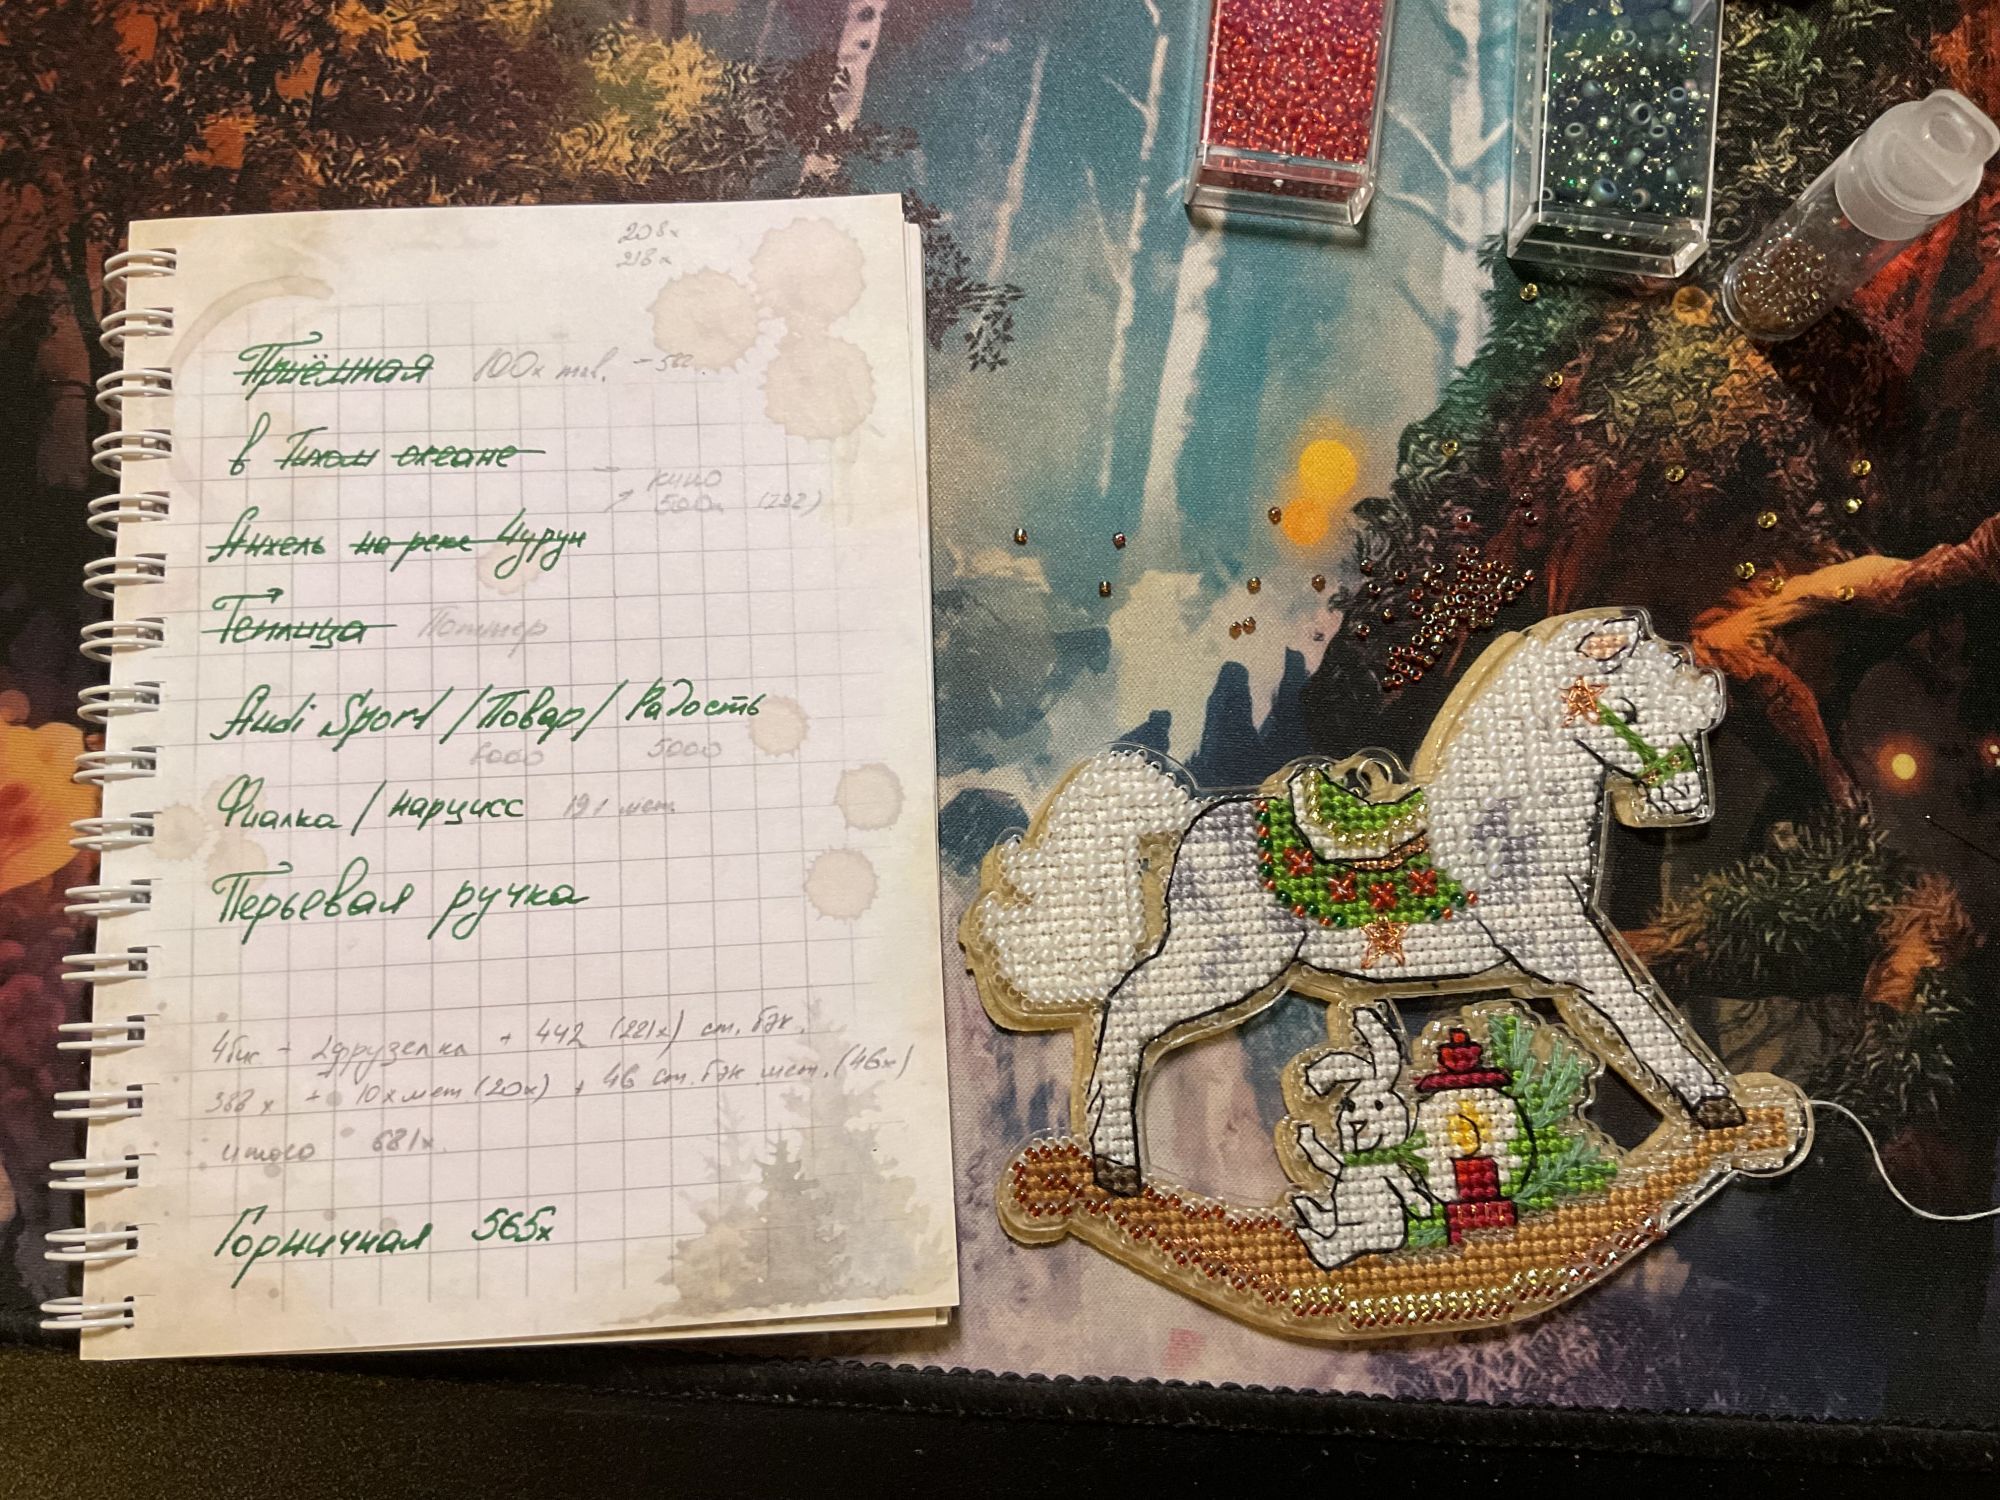 208х
218х
Приёмная 100х мет. - 582
в Тихом океане
кино
500х (292)
Анхель на реке Чурун
Теплица
Audi Sport / Повар / Радость
6000 5000
Фиалка / нарцисс 191 мет.
Перьевая ручка
4бис - 2фрузелка + 442 (221х) ст. бэк.
388х + 10х мет. (20х) + 46 ст. бэк мет. (46х)
итого 681х
Горничная 565х